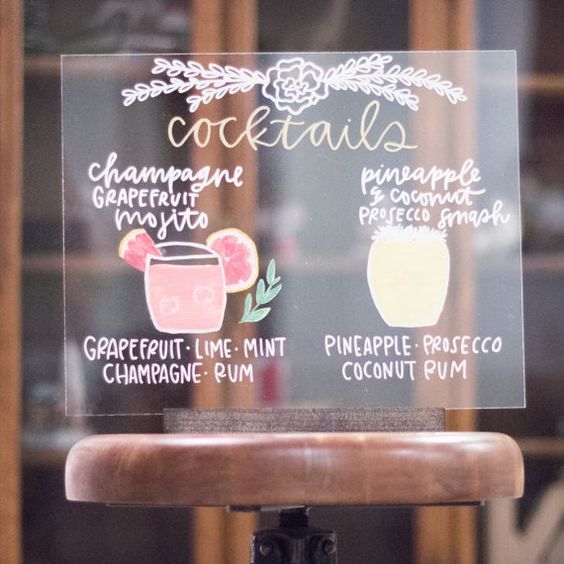 cocktails
champagne
GRAPEFRUIT
mojito
GRAPEFRUIT · LIME · MINT
CHAMPAGNE · RUM
pineapple
& coconut
PROSECCO smash
PINEAPPLE · PROSECCO
COCONUT RUM